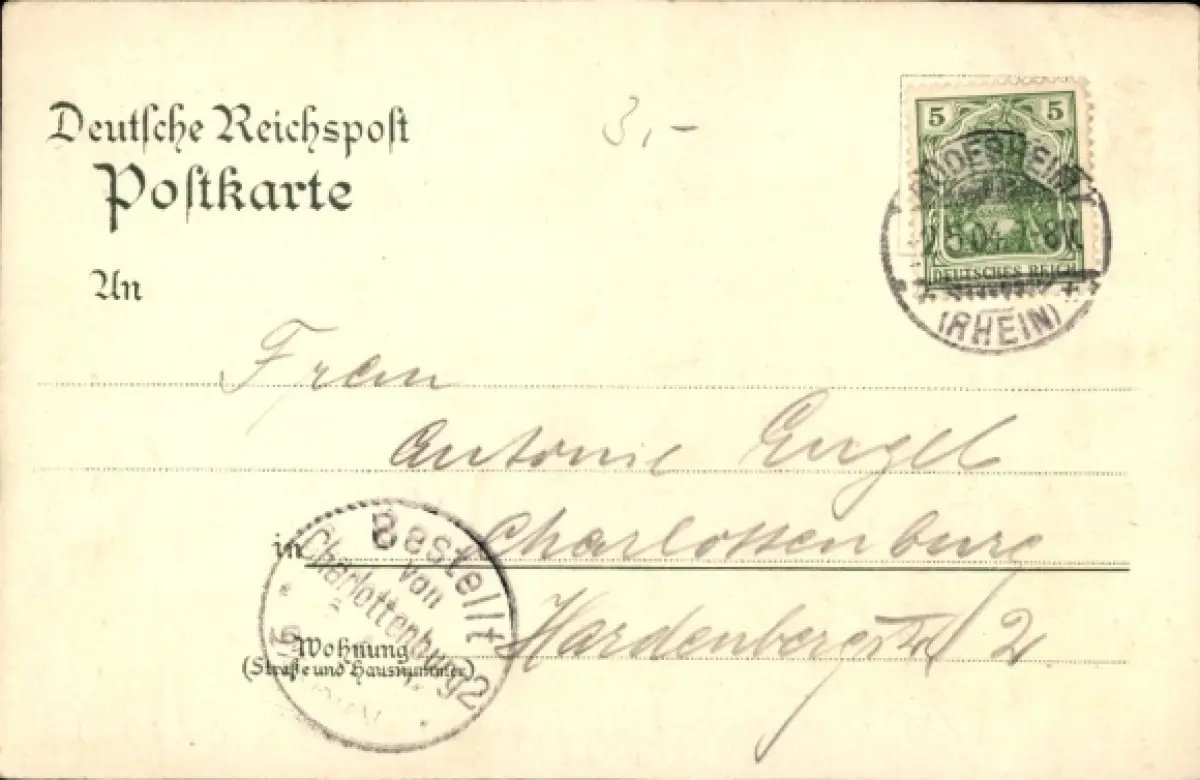 Deutsche Reichspost
Postkarte
3,-
5 5
DEUTSCHES REICH
RÜDESHEIM
2.5.04. 7-8N
(RHEIN)
An
Frau
Antonie Engel
in Charlottenburg
Wohnung Hardenbergstr 2
(Straße und Hausnummer)
Bestellt
von
Charlottenburg 2